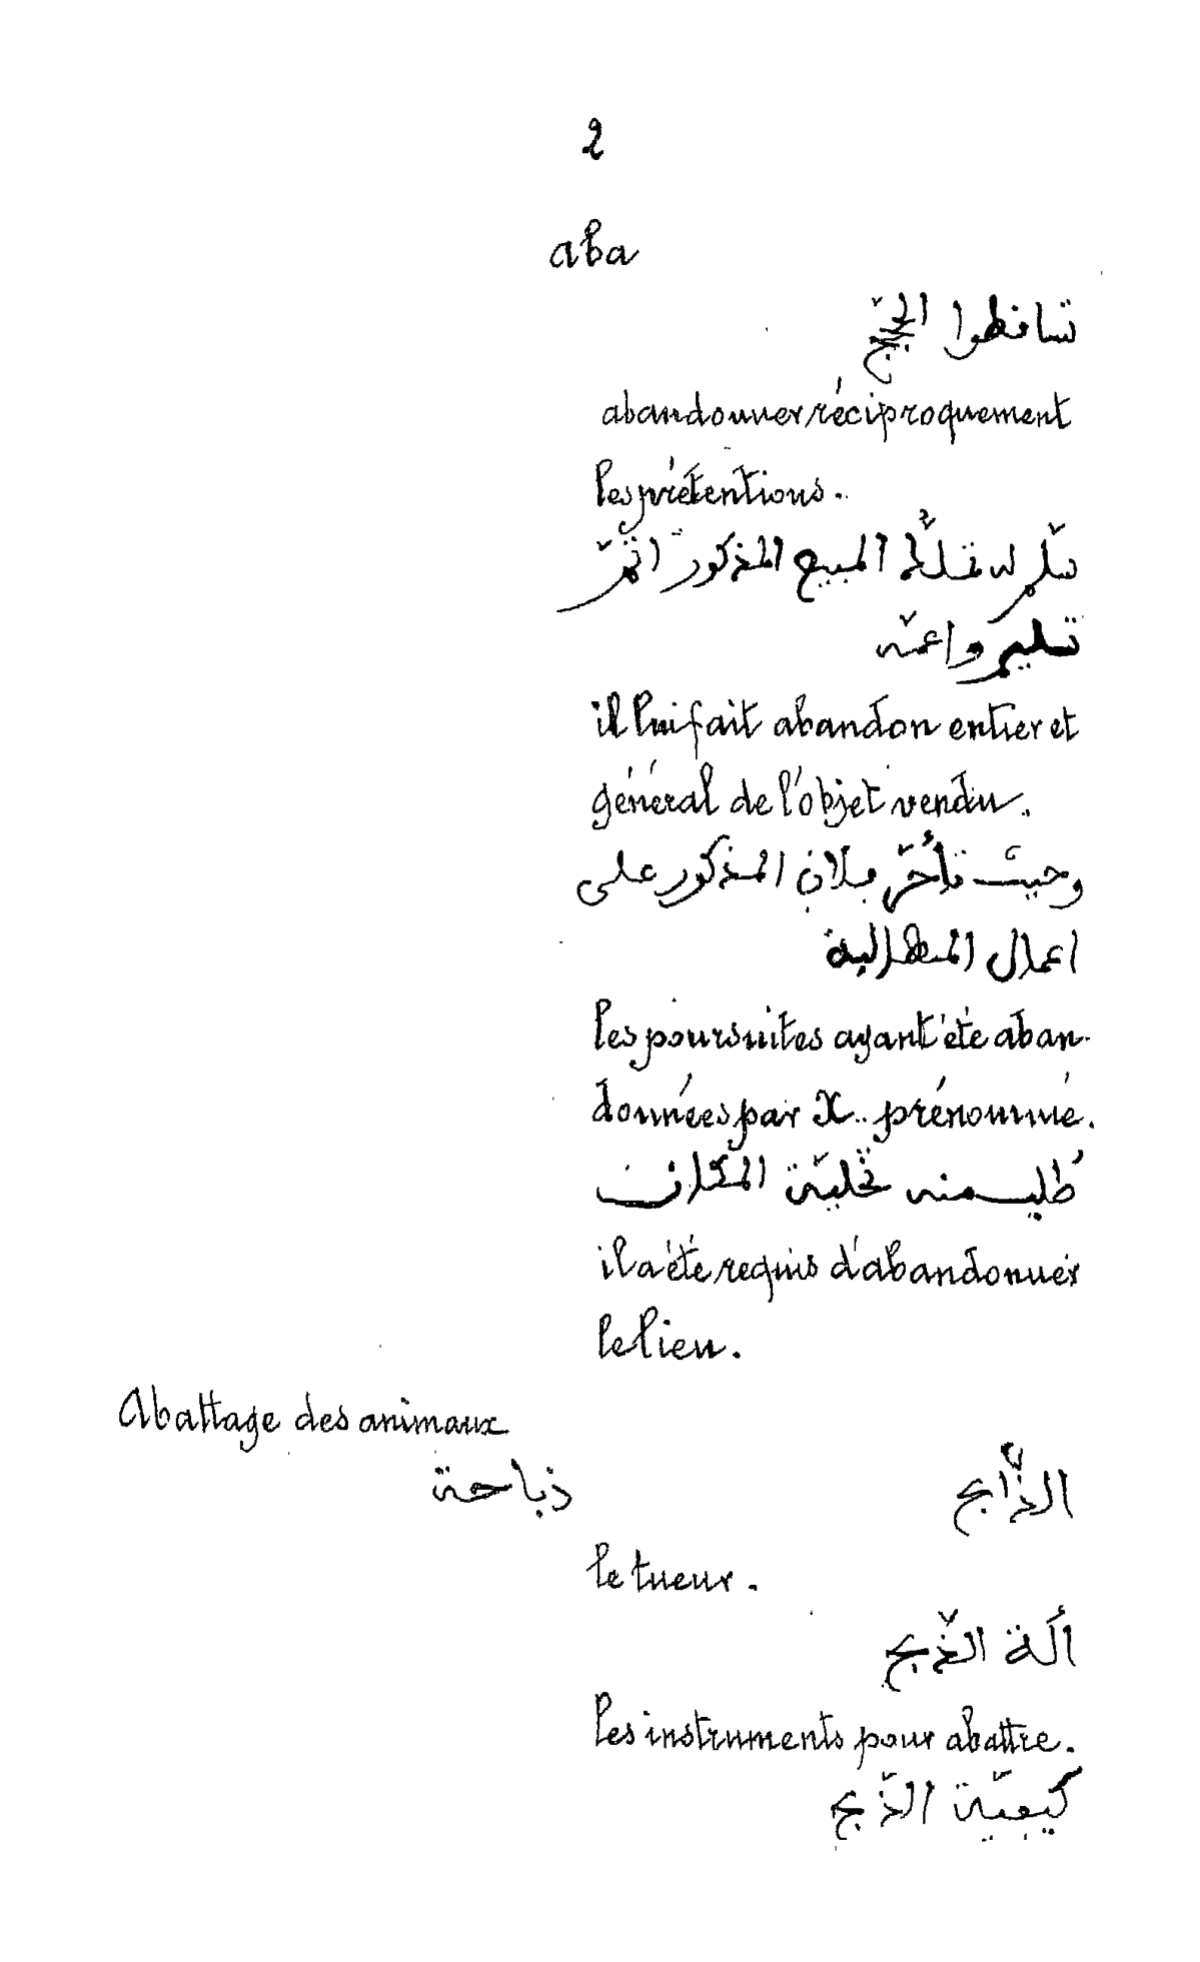 2
aba
تساقطوا الحجج
abandonner réciproquement
les prétentions.
سلم له المبيع المذكور اتمّ
تسليم واعمّه
il lui fait abandon entier et
général de l'objet vendu.
وحيث تأخّر فلان المذكور على
اعمال المطالبة
les poursuites ayant été aban-
données par X.. prénommé.
طُلب منه تخلية المكان
il a été requis d'abandonner
le lieu.
Abattage des animaux
ذباحة
الذّابح
le tueur.
ألة الذّبح
les instruments pour abattre.
كيفيّة الذّبح